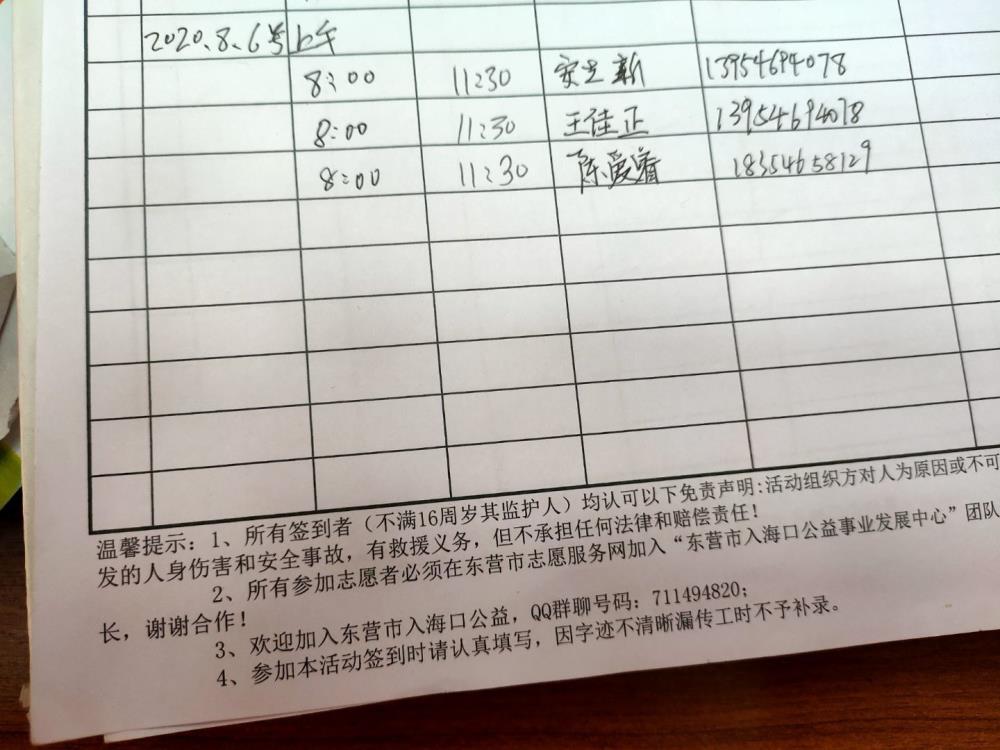 2020.8.6号 上午
8:00 11:30 安芝新 13954694078
8:00 11:30 王佳正 13954694078
8:00 11:30 陈爱 18354658129
温馨提示：1、所有签到者（不满16周岁其监护人）均认可以下免责声明:活动组织方对人为原因或不可
发的人身伤害和安全事故，有救援义务，但不承担任何法律和赔偿责任！
2、所有参加志愿者必须在东营市志愿服务网加入“东营市入海口公益事业发展中心”团队
长，谢谢合作！
3、欢迎加入东营市入海口公益，QQ群聊号码：711494820；
4、参加本活动签到时请认真填写，因字迹不清晰漏传工时不予补录。